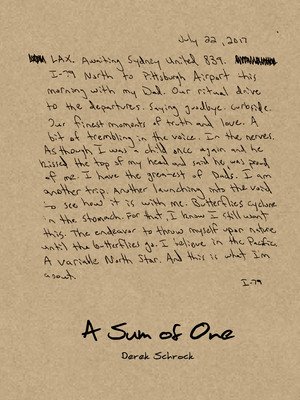 July 22, 2017
LAX. Awaiting Sydney United 839.
I-79 North to Pittsburgh Airport this
morning with my Dad. Our ritual drive
to the departures. Saying goodbye. curbside.
Our finest moments of truth and love. A
bit of trembling in the voice. In the nerves.
As though I was a child once again and he
kissed the top of my head and said he was proud
of me. I have the greatest of Dads. I am
another trip. Another launching into the void
to see how it is with me. Butterflies cyclone
in the stomach. For that I know I still want
this. The endeavor to throw myself upon nature
until the butterflies go. I believe in the Pacific.
A variable North Star. And this is what I'm
about.
I-79
A Sum of One
Derek Schrock